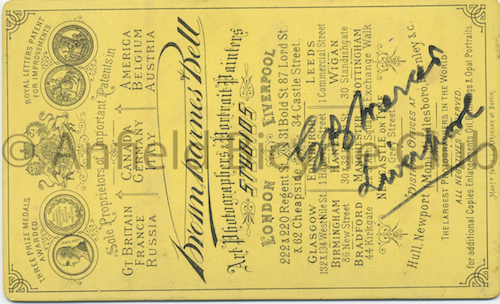 ROYAL LETTERS PATENT
FOR IMPROVEMENTS
THREE PRIZE MEDALS
AWARDED
Sole Proprietors of Important Patents in
GT BRITAIN CANADA AMERICA
FRANCE BELGIUM
RUSSIA ITALY AUSTRIA
Brown Barnes & Bell
Art Photographers & Portrait Painters
STUDIOS
LONDON LIVERPOOL
222 & 220 Regent St 31 Bold St 87 Lord St
& 62 Cheapside & 34 Castle Street
GLASGOW LEEDS
Commercial Street
BIRMINGHAM WIGAN
86 New Street 30 Standishgate
BRADFORD MANCHESTER NOTTINGHAM
44 Kirkgate Exchange Walk
NEWCASTLE ON TYNE
Grey Street
DISTRICT OFFICES AT
Hull, Newport (Mon) Middlesboro, Henley &c.
THE LARGEST PHOTOGRAPHERS IN THE WORLD
ALL NEGATIVES PRESERVED
for additional Copies Enlargements Oil Paintings & Opal Portraits.
© Anfield Bicycle Club